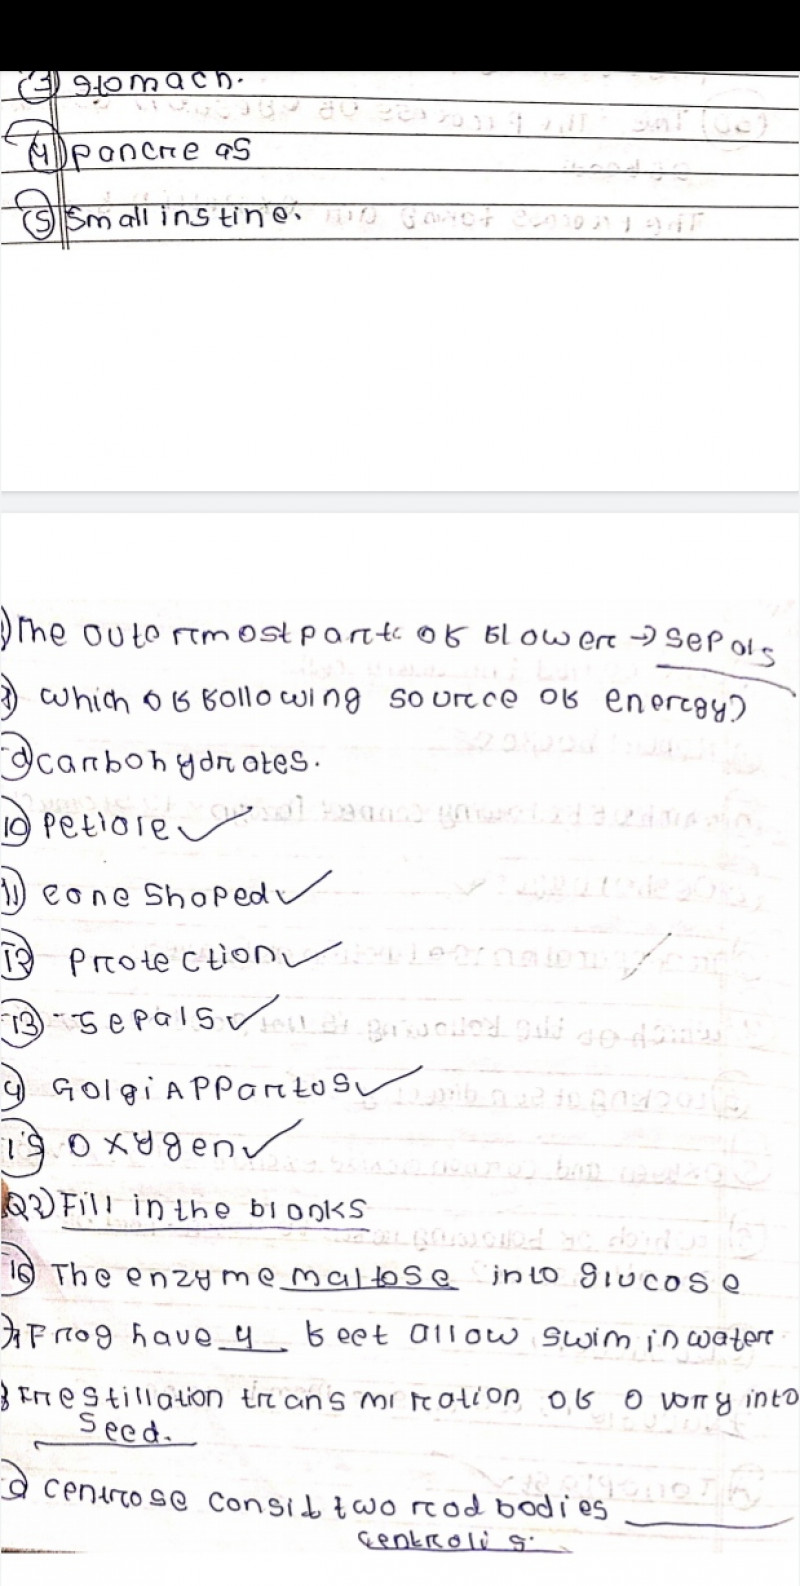 ③ stomach.
④ pancre as
⑤ Small instine.
The outermost part of flower → Sepals
which of following source of energy?
carbohydrates.
⑩ Petiole ✓
⑪ cone Shaped ✓
⑫ Protection ✓
⑬ Sepals ✓
Golgi APPartus ✓
⑮ oxygen ✓
Q2) Fill in the blanks
⑯ The enzyme maltose into glucose
Frog have 4 feet allow swim in water
of ovary into
Seed.
centrose consit two rod bodies ______